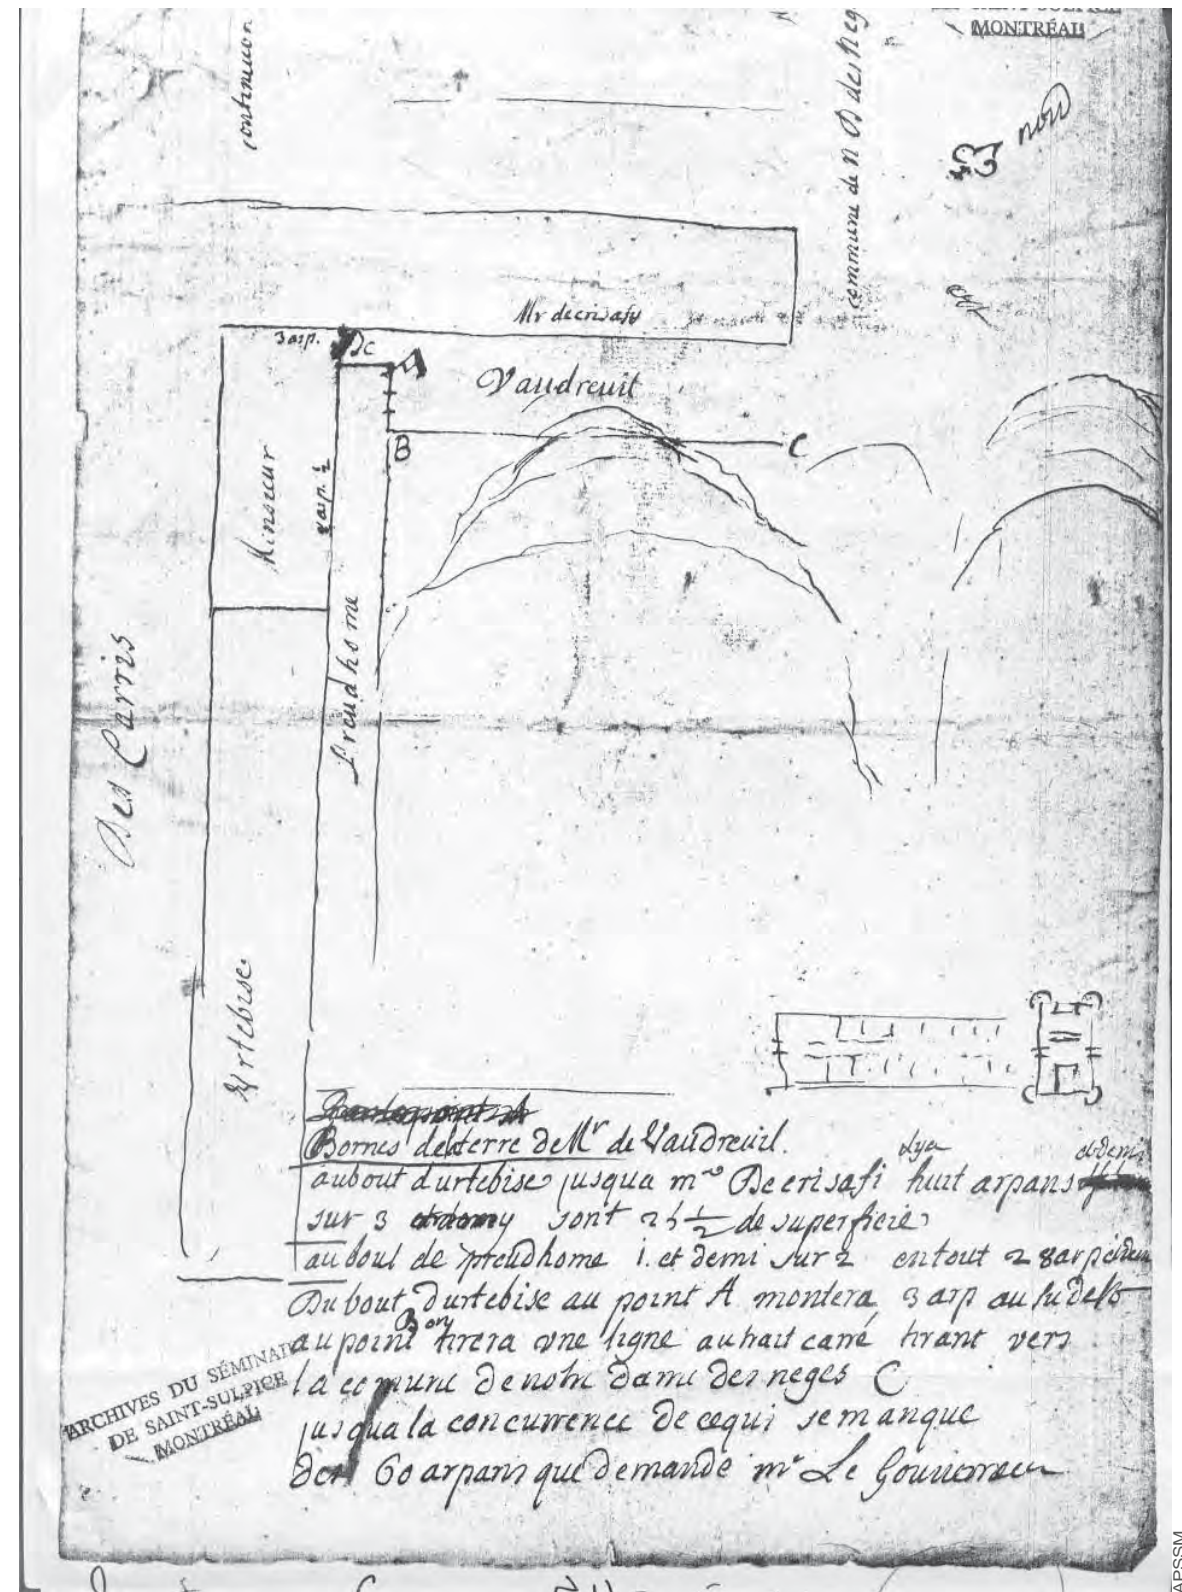 MONTRÉAL
continuon
commune de n D des neg
53 non
Mr decrisafy
3 arp.
Dc
A
Vaudreuil
B
C
8 arp. ½
Minseur
Preudhome
Des Carris
Urtebise
Bornes de terre de Mr de Vaudreuil.
dya et demi
aubout durtebise jusqua mr De crisafi huit arpans
sur 3 sont 25 ½ de superficie
au bout de preudhome 1. et demi sur 2 en tout 28 arp
Du bout Durtebise au point A montera 3 arp au su
au point B on tirera une ligne au trait carré tirant vers
la comune de notre dame des neges C
jusqua la concurrence de cequi se manque
des 60 arpans que demande mr Le Gouverneur
ARCHIVES DU SÉMINAIRE
DE SAINT-SULPICE
MONTRÉAL
APSSM